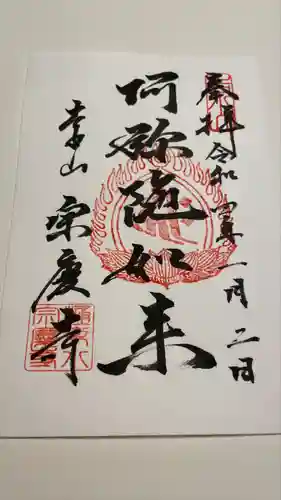 奉拝 令和四年一月二日
阿弥陀如来
李山 宗慶寺